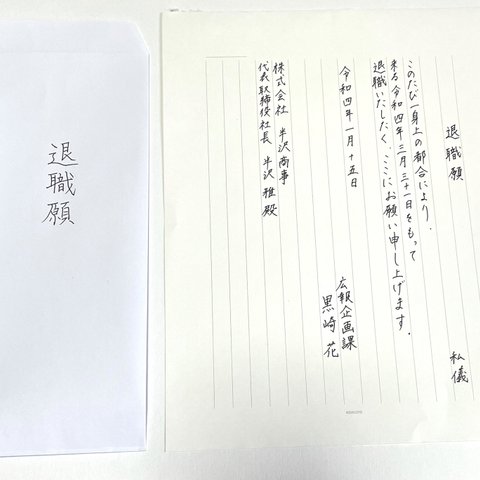 退職願
私儀
このたび一身上の都合により、
来る令和四年三月三十一日をもって
退職いたしたく、ここにお願い申し上げます。
令和四年一月十五日
広報企画課
黒崎 花
株式会社 半沢商事
代表取締役社長 半沢 雅殿
KOKUYO
退職願